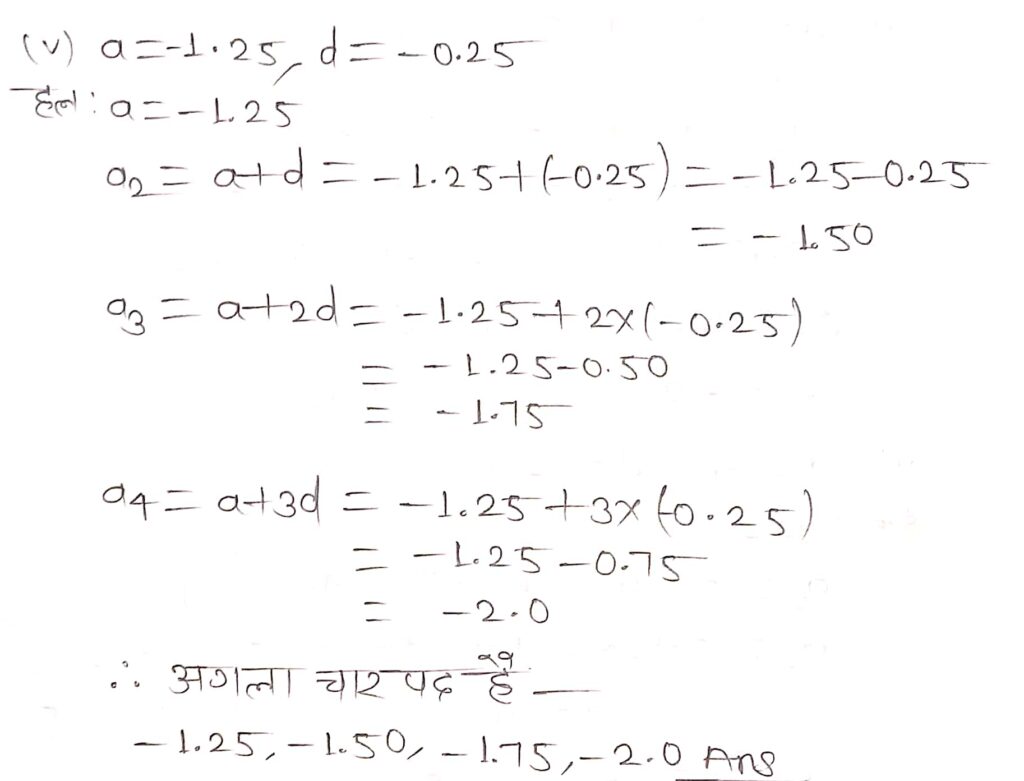 (v) a=-1.25, d=-0.25
हल: a=-1.25
a2 = a+d = -1.25+(-0.25) = -1.25-0.25
= -1.50
a3 = a+2d = -1.25+2x(-0.25)
= -1.25-0.50
= -1.75
a4 = a+3d = -1.25+3x(-0.25)
= -1.25-0.75
= -2.0
∴ अगला चार पद है —
-1.25, -1.50, -1.75, -2.0 Ans